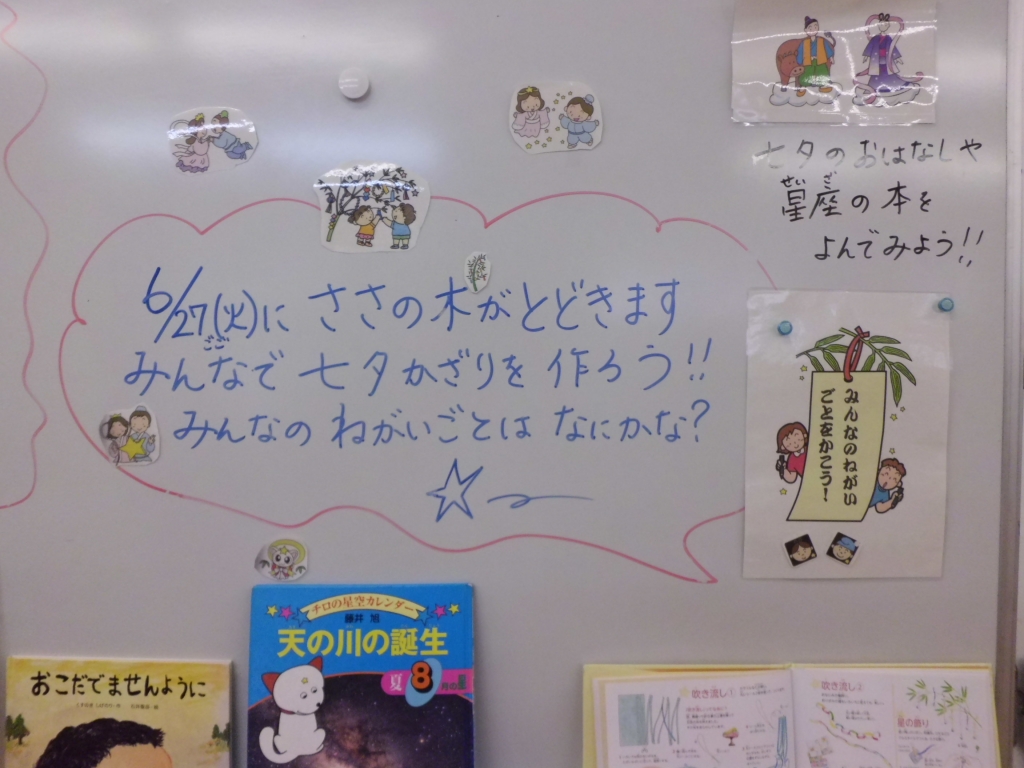 七夕のおはなしや
星座の本を
せい ざ
よんでみよう!!
6/27(火)に ささの木がとどきます
ごご
みんなで 七夕かざりを 作ろう!!
みんなの ねがいごとは なにかな?
みんなのねがい
ごとをかこう！
チロの星空カレンダー
藤井 旭
天の川の誕生
夏 8月の星
おこだでませんように
吹き流し①
吹き流し②
星の飾り